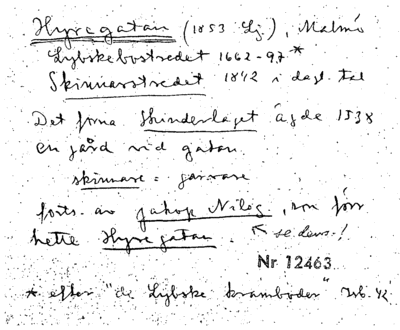 Hyregatan (1853 Lj.), Malmö
Lybskebostredet 1662-97*
Skinnarstredet 1842 i dagl. tal
Det forna Skinderlaget ägde 1538
en gård vid gatan.
skinnare = garvare
forts. av Jakob Nilsg., som förr
hette Hyregatan. ↖ se dens.!
Nr 12463
* efter "de Lybske kramboder" Isb. 42